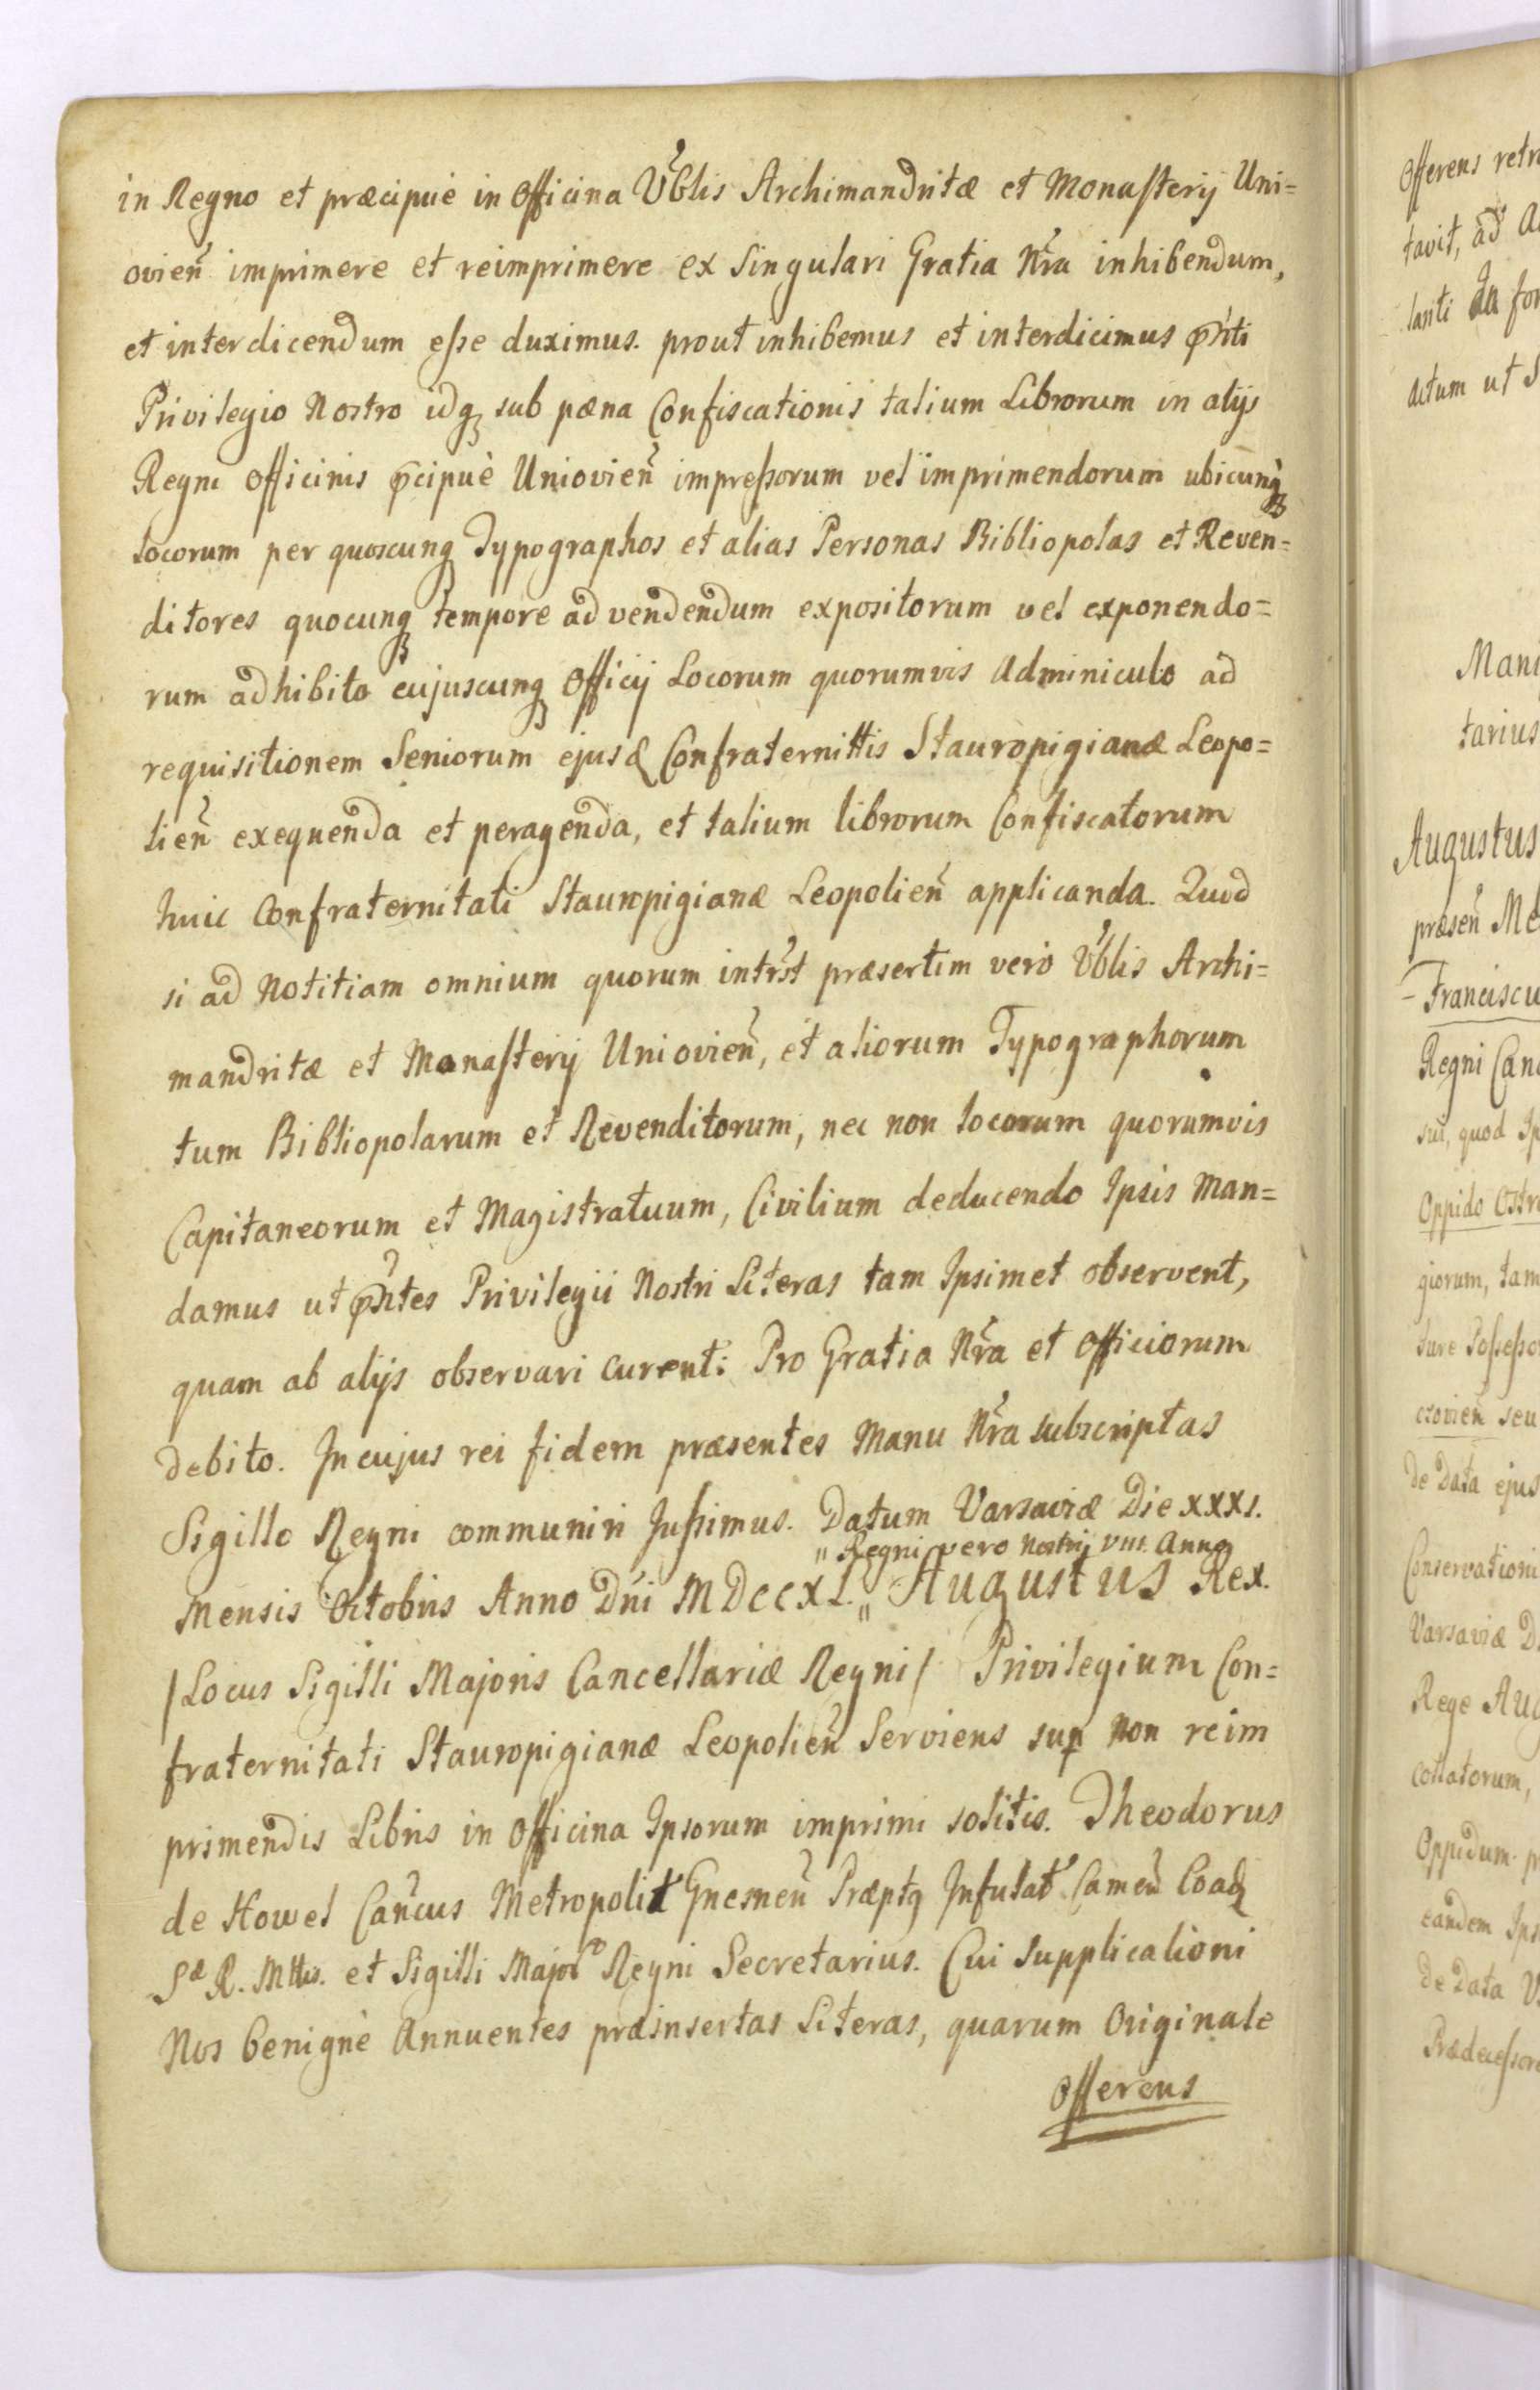 in Regno et præcipuè in Officina Vblis Archimandritæ et Monasterij Uni=
ovien̄ imprimere et reimprimere ex Singulari Gratia Nr̃a inhibendum,
et interdicendum esse duximus. prout inhibemus et interdicimus pñti
Privilegio Nostro idq̨ sub pæna Confiscationis talium Librorum in alijs
Regni Officinis p̄cipuè Uniovien̄ impressorum vel imprimendorum ubicunq̨
locorum per quoscunq̨ Typographos et alias Personas Bibliopolas et Reven=
ditores quocunq̨ tempore ad vendendum expositorum vel exponendo=
rum adhibito cujuscunq̨ Officij Locorum quorumvis Adminiculo ad
requisitionem Seniorum ejusd Confraternittis Stauropigianæ Leopo=
lien̄ exequenda et peragenda, et talium librorum Confiscatorum
huic Confraternitati Stauropigianæ Leopolien̄ applicanda. Quod
si ad Notitiam omnium quorum intr̃st præsertim verò Vblis Archi=
mandritæ et Monasterij Uniovien̄, et aliorum Typographorum
tum Bibliopolarum et Revenditorum, nec non locorum quorumvis
Capitaneorum et Magistratuum, Civilium deducendo Ipsis Man=
damus ut pñtes Privilegii Nostri Literas tam Ipsimet observent,
quam ab alijs observari curent: Pro Gratia Nr̃a et Officiorum
debito. In cujus rei fidem præsentes Manu Nr̃a subscriptas
Sigillo Regni communiri Jussimus. Datum Varsaviæ Die XXXI.
" Regni vero Nostrij VIII. Anno
Mensis Octobris Anno Dńi MDCCXL. " Augustus Rex.
/Locus Sigilli Majoris Cancellariæ Regni/ Privilegium Con=
fraternitati Stauropigianæ Leopolien̄ Serviens sup non reim
primendis Libris in Officina Ipsorum imprimi solitis. Theodorus
de Howel Cañcus Metropolit Gnesnen̄ Præptq̨ Infulat Camen̄ Coad
S̃æ R. Mttis. et Sigilli Major Regni Secretarius. Cui supplicationi
Nos benignè Annuentes præinsertas Literas, quarum Originale
Offerens
Offerens
tavit, ad
lanti In
Actum ut
tarius
Augustus
præsen̄
Franciscu
Regni Can
sui, quod
Oppido
giorum, tam
Jure
seu
De Data ejus
Conservationi
Varsaviæ
Rege
Collatorum,
Oppidum
eandem
De Data